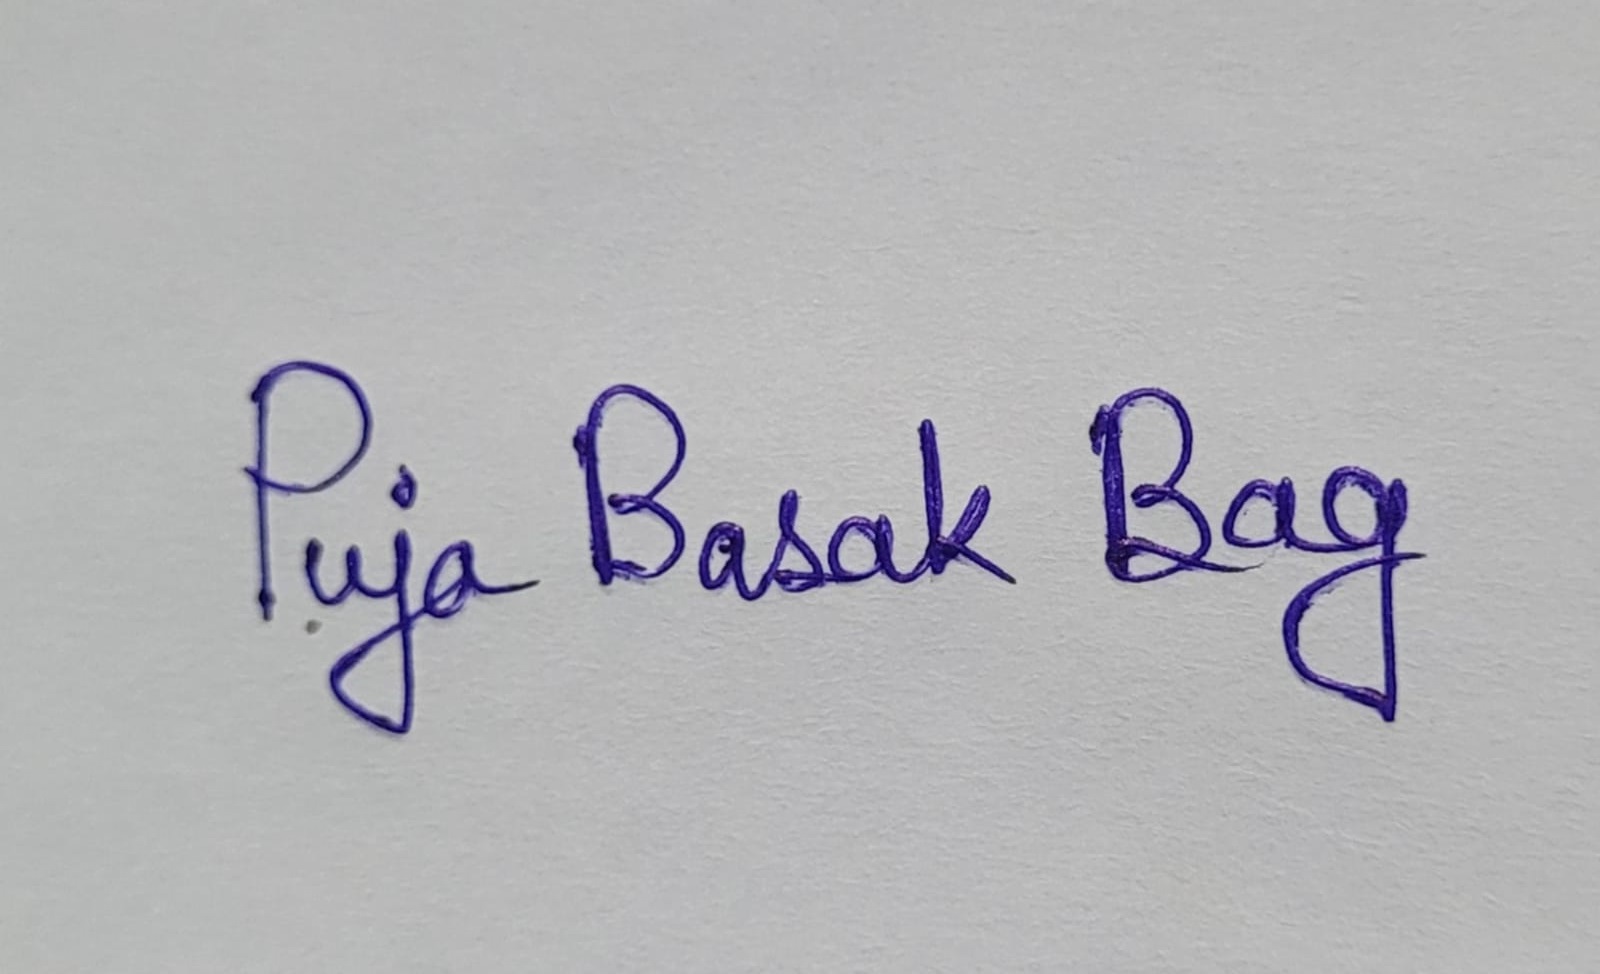 Puja Basak Bag